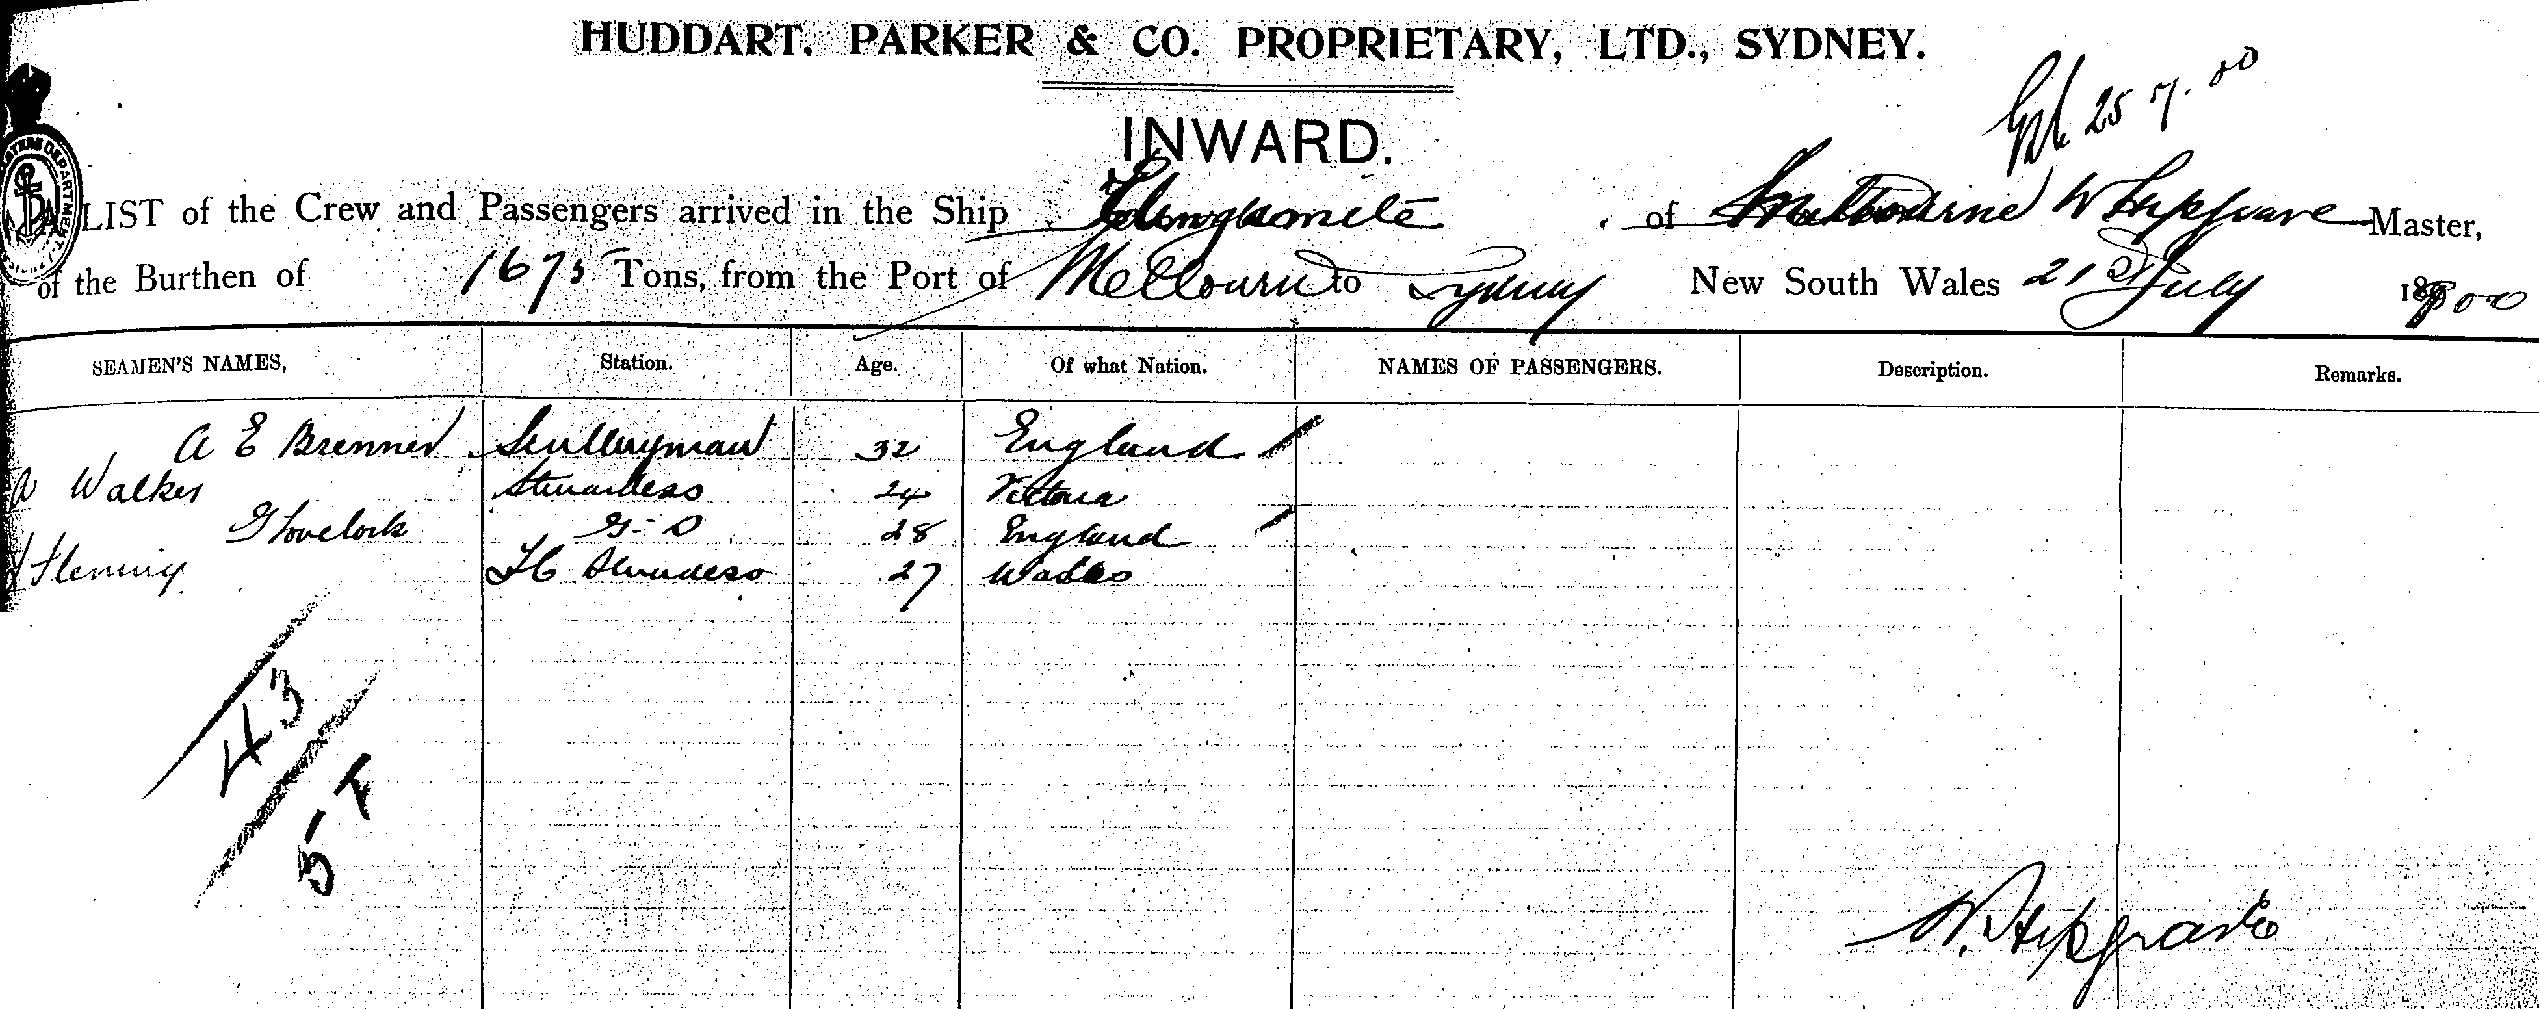 HUDDART, PARKER & CO. PROPRIETARY, LTD., SYDNEY.
25 7. 00
INWARD.
A LIST of the Crew and Passengers arrived in the Ship Elingamite of Melbourne W Hipgrave Master,
of the Burthen of 1675 Tons, from the Port of Melbourne to Sydney New South Wales 21st July 1900
SEAMEN'S NAMES, Station. Age. Of what Nation. NAMES OF PASSENGERS. Description. Remarks.
A E Brenner Sculleryman 32 England
Walker Stewardess 24 Victoria
G Lovelock G S 28 England
Fleming F C Stewardess 27 Wales
43
54
W. Hipgrave